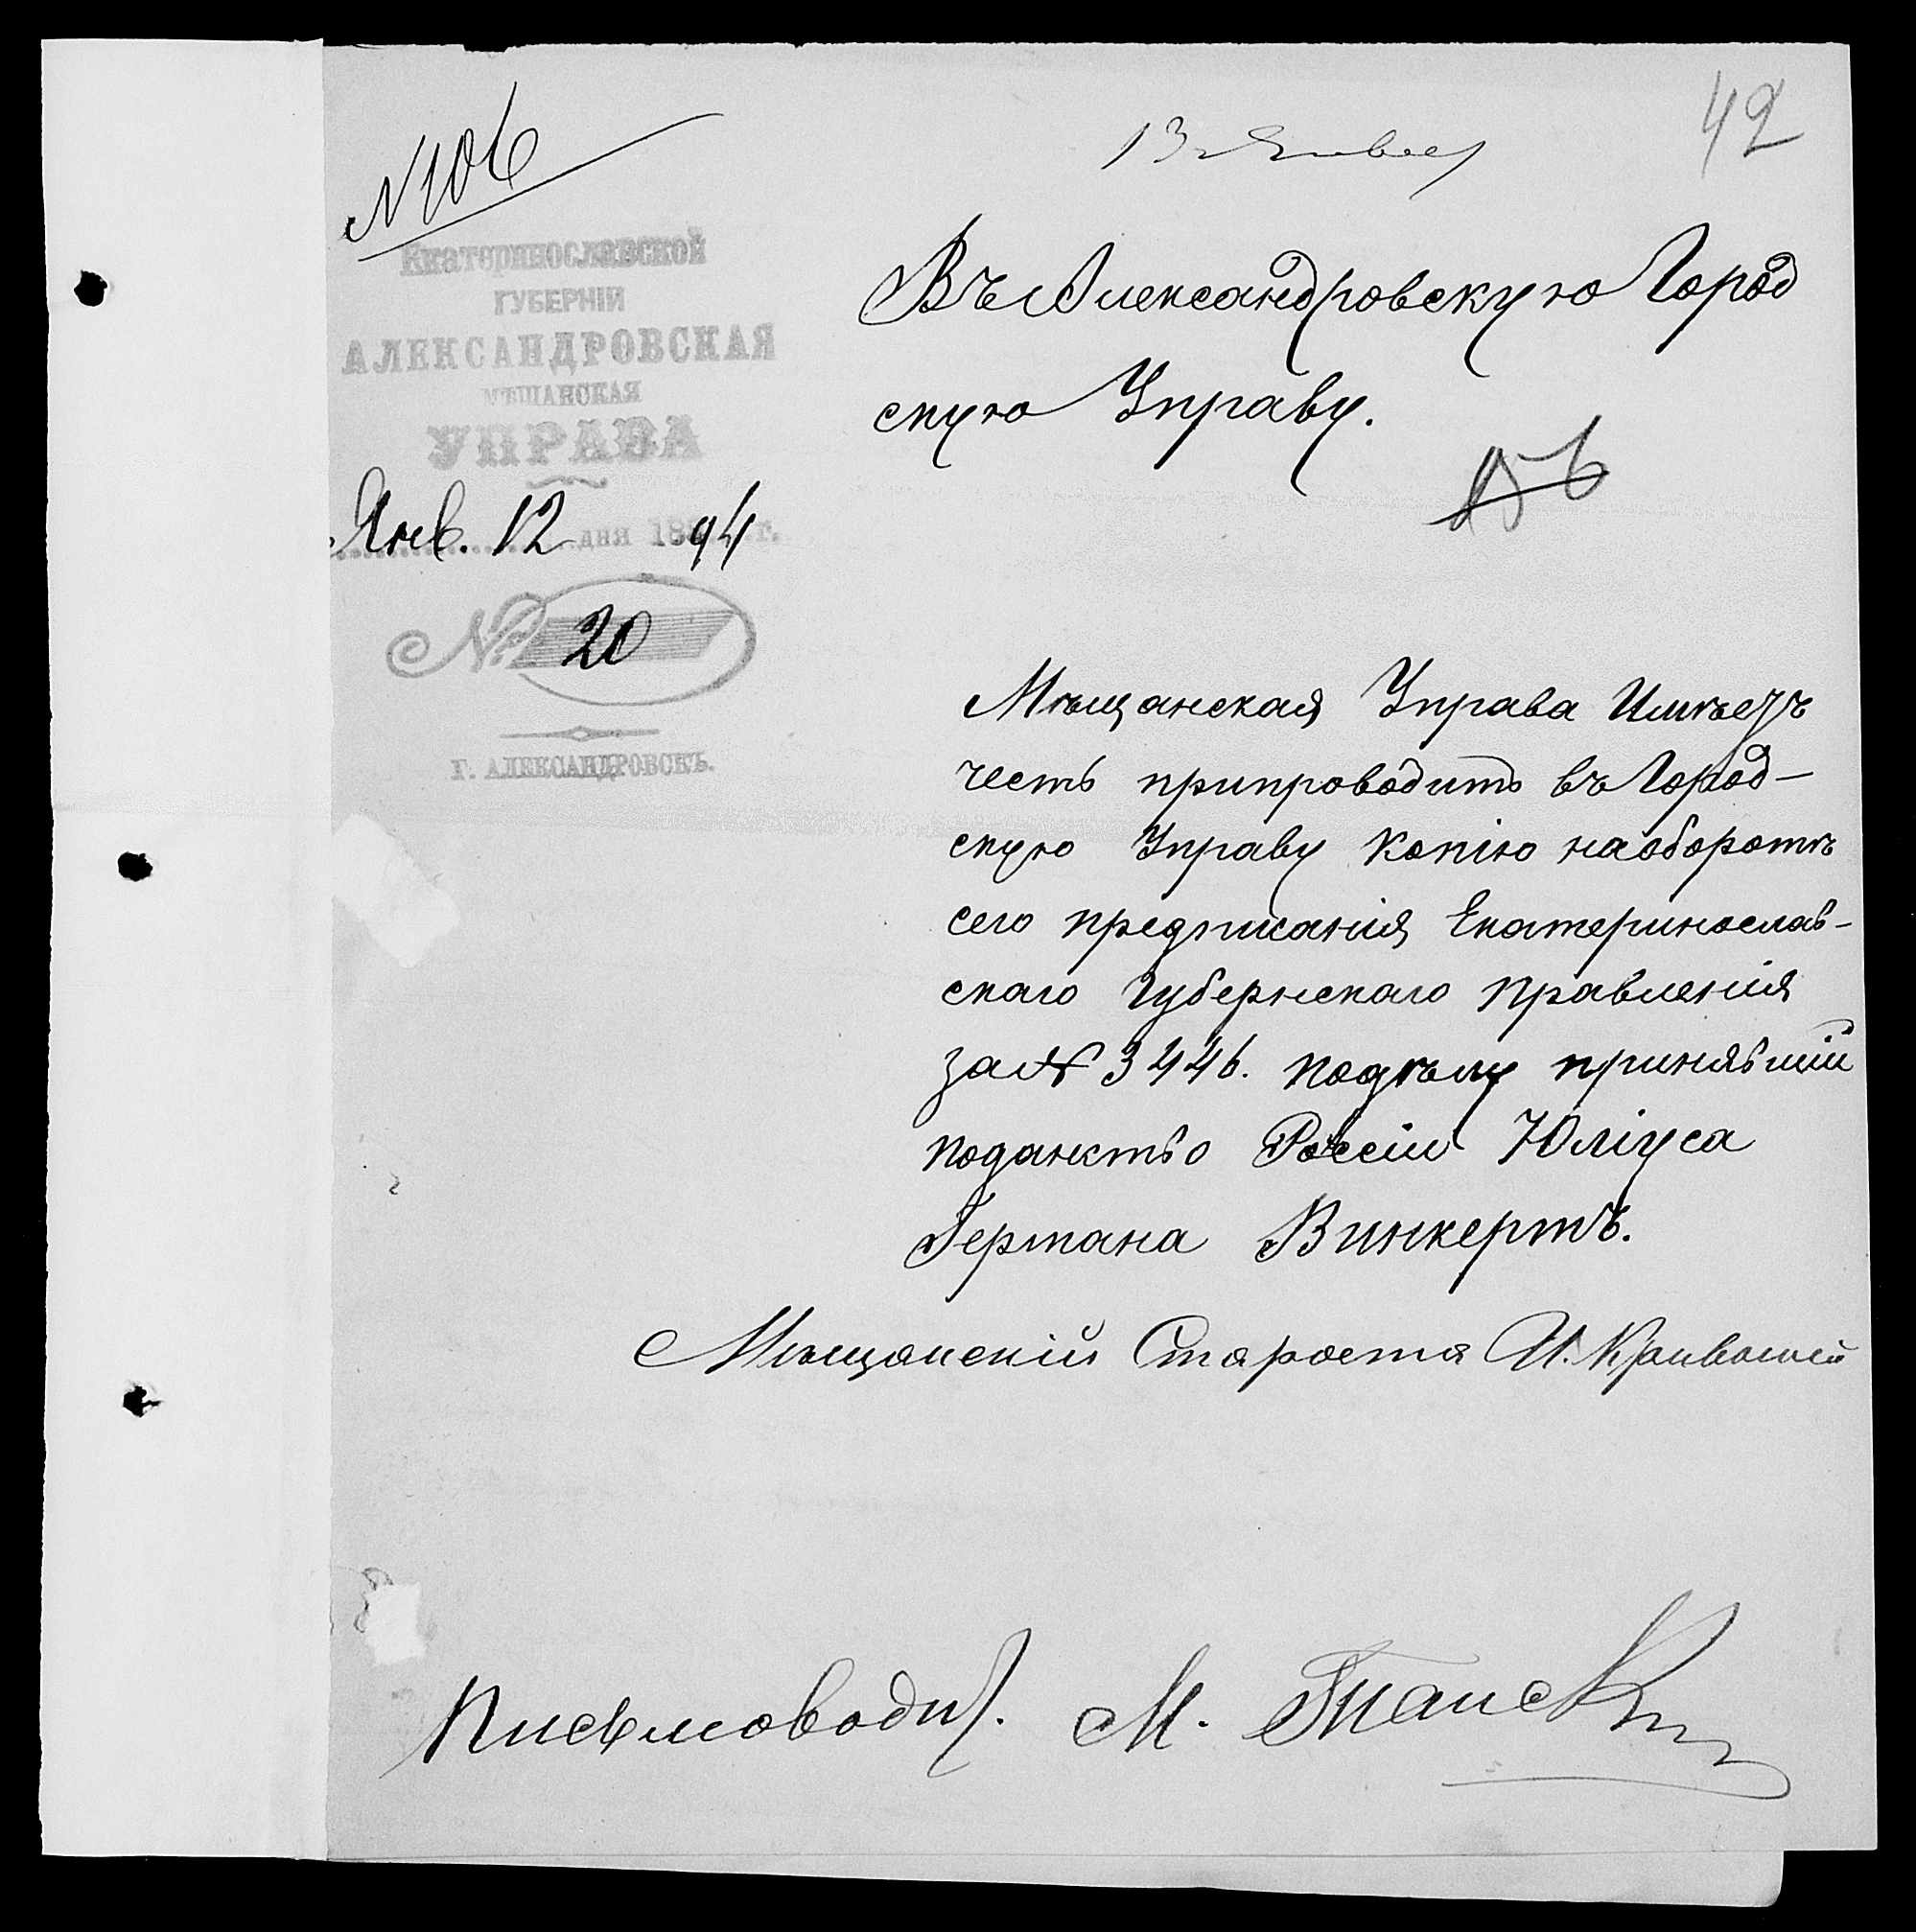 42
№ 106
13 Января
Екатеринославской
ГУБЕРНІИ
АЛЕКСАНДРОВСКАЯ
МѢЩАНСКАЯ
УПРАВА
Янв. 12 дня 1894 г.
№ 20
г. АЛЕКСАНДРОВСКЪ.
Въ Александровскую Город
скую Управу.
Мѣщанская Управа Имѣетъ
честь припроводить въ Город-
скую Управу копію наоборотѣ
сего предписанія Екатеринослав-
скаго Губернскаго Правленія
за № 3446. подѣлу принявшій
поданство Россіи Юліуса
Германа Винкертъ.
Мѣщанскій Староста И.
Письмоводит. М.